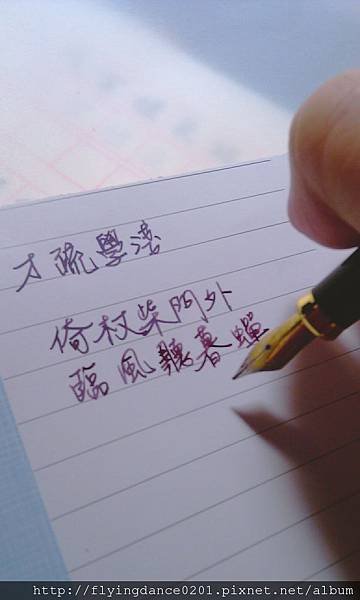 才疏學淺
倚杖柴門外
臨風聽暮蟬
http://flyingdance0201.pixnet.net/album